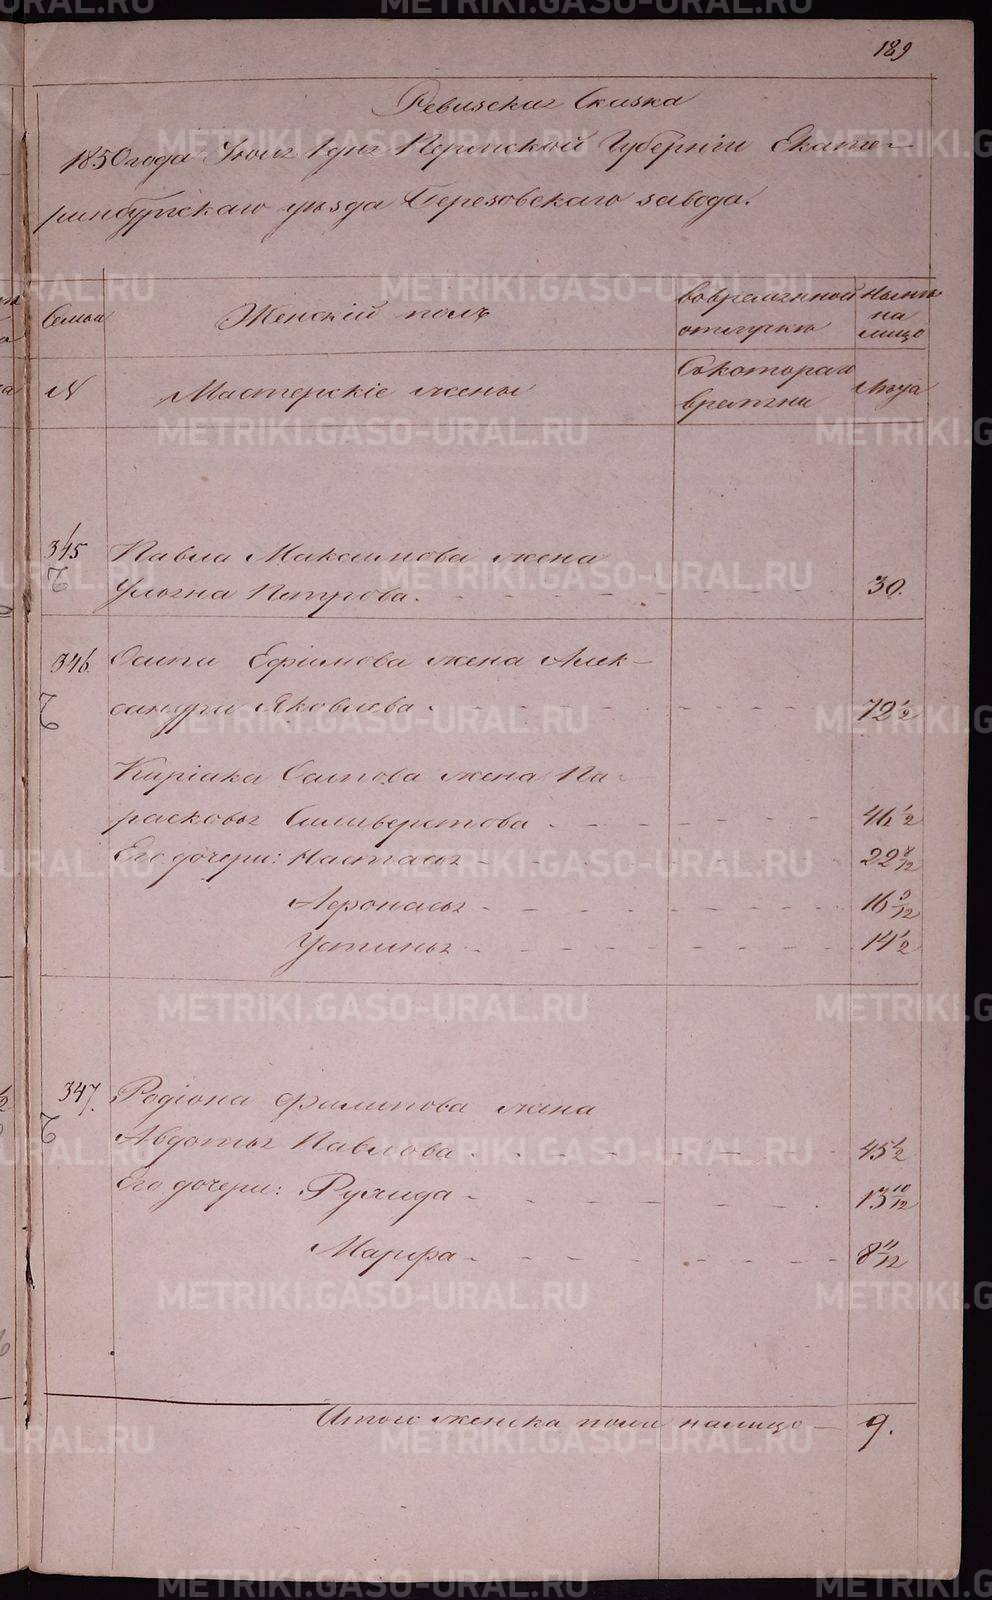 189
Ревизская Сказка
1850 года Июля 1 дня Пермской Губернiи Екате-
ринбургскаго уѣзда Березовскаго завода.
Семьи
Женскiй полъ
Во временной отлучкѣ
Нынѣ на лицо
N
Мастерскiе жены
Съ котораго времени
Лѣта
345
Павла Максимова жена
Ульяна Петрова. 30.
346.
Осипа Ефимова жена Алек-
сандра Яковлева. 72 1/2
Кирiака Осипова жена Па-
расковья Сильверстова 46 1/2
Его дочери: Настасья 22
Афонасья 16 9/12
Устинья 14 1/2
347.
Родiона Филипова жена
Авдотья Павлова 45 1/2
Его дочери: 13 10/12
Марфа 8 11/12
Итого женска пола налицо 9.
METRIKI.GASO-URAL.RU